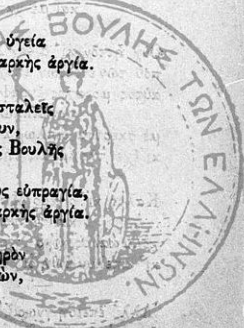 ὑγεία
αρχῆς ἀργία.
σταλεῖς
υν,
ς Βουλῆς
ς εὐπραγία,
αρκῆς ἀργία.
ηρὸν
ῶν,
ΒΟΥΛΗΣ ΤΩΝ ΕΛΛΗΝΩΝ